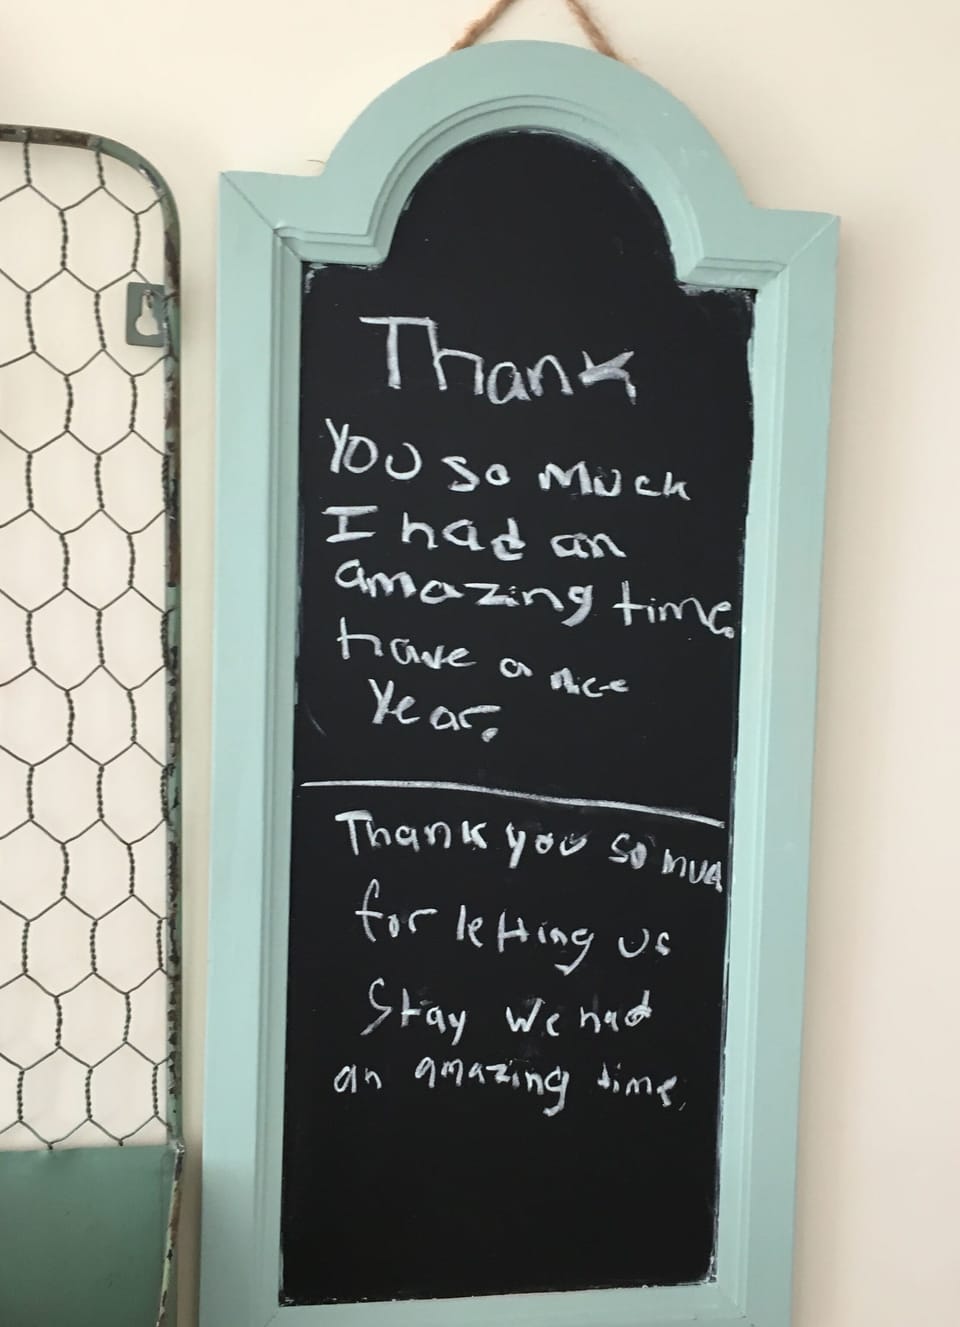 Thank
You so Much
I had an
amazing time.
have a nice
Year.
Thank you so much
for letting us
Stay We had
an amazing time.